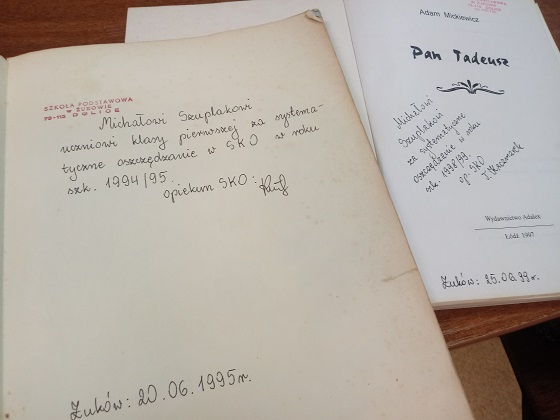 SZKOŁA PODSTAWOWA
W ŻUKOWIE
73-115 DOLICE
Michałowi Szuplakowi
uczniowi klasy pierwszej za systema-
tyczne oszczędzanie w SKO w roku
szk. 1994/95.
opiekun SKO:
Żuków: 20.06.1995r.
Adam Mickiewicz
Pan Tadeusz
Michałowi
Szuplakowi
za systematyczne
oszczędzanie w roku
szk. 1998/99.
op. SKO
Wydawnictwo Adalex
Łódź 1997
Żuków: 25.06.99r.